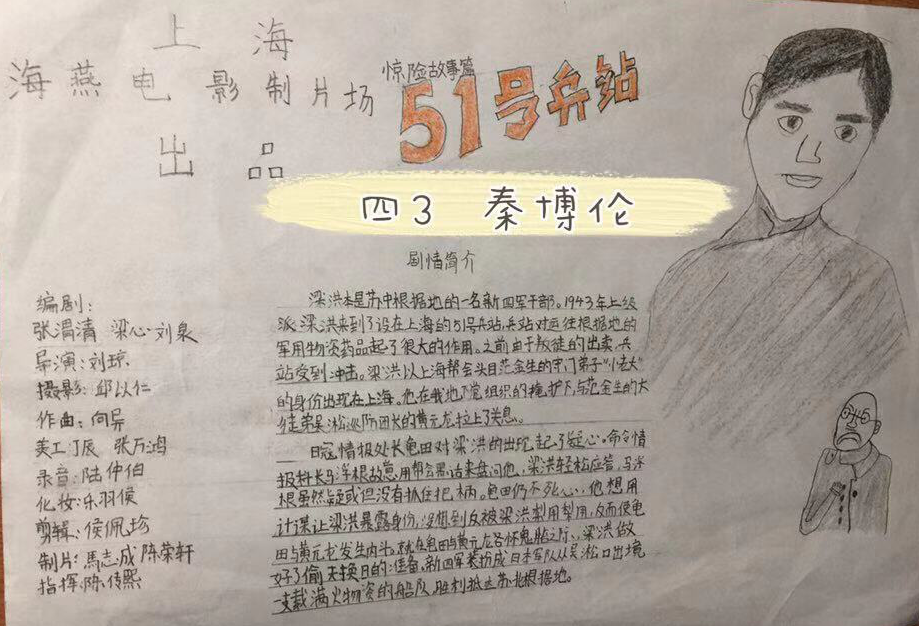 上海
海燕电影制片场
出品
惊险故事篇
51号兵站
四3 秦博伦
剧情简介
编剧:
张渭清 梁心 刘泉
导演:刘琼
摄影:邱以仁
作曲:向异
美工丁辰 张万鸿
录音:陆仲伯
化妆:乐羽侯
剪辑:侯佩珍
制片:馬志成 陈荣轩
指挥:陈传熙
梁洪本是苏中根据地的一名新四军干部。1943年上级
派梁洪来到了设在上海的51号兵站,兵站对运往根据地的
军用物资药品起了很大的作用。之前由于叛徒的出卖,兵
站受到冲击。梁洪以上海帮会头目范金生的守门弟子“小老大”
的身份出现在上海。他在我地下党组织的掩护下,与范金生的大
徒弟吴淞巡防团长的黄元龙拉上了关息。
日寇情报处长龟田对梁洪的出现起了疑心。命令情
报科长马浮根故意用帮会黑话来盘问他,梁洪轻松应答,马浮
根虽然疑或但没有抓住把柄。龟田仍不死心,他想用
计谋让梁洪暴露身份,没想到反被梁洪利用,反而使龟
田与黄元龙发生内斗。就在龟田与黄元龙各怀鬼胎之际,梁洪做
好了偷天换日的准备,新四军装扮成日本军队从吴淞口出境
支载满火物资的船队,胜利抵达苏北根据地。